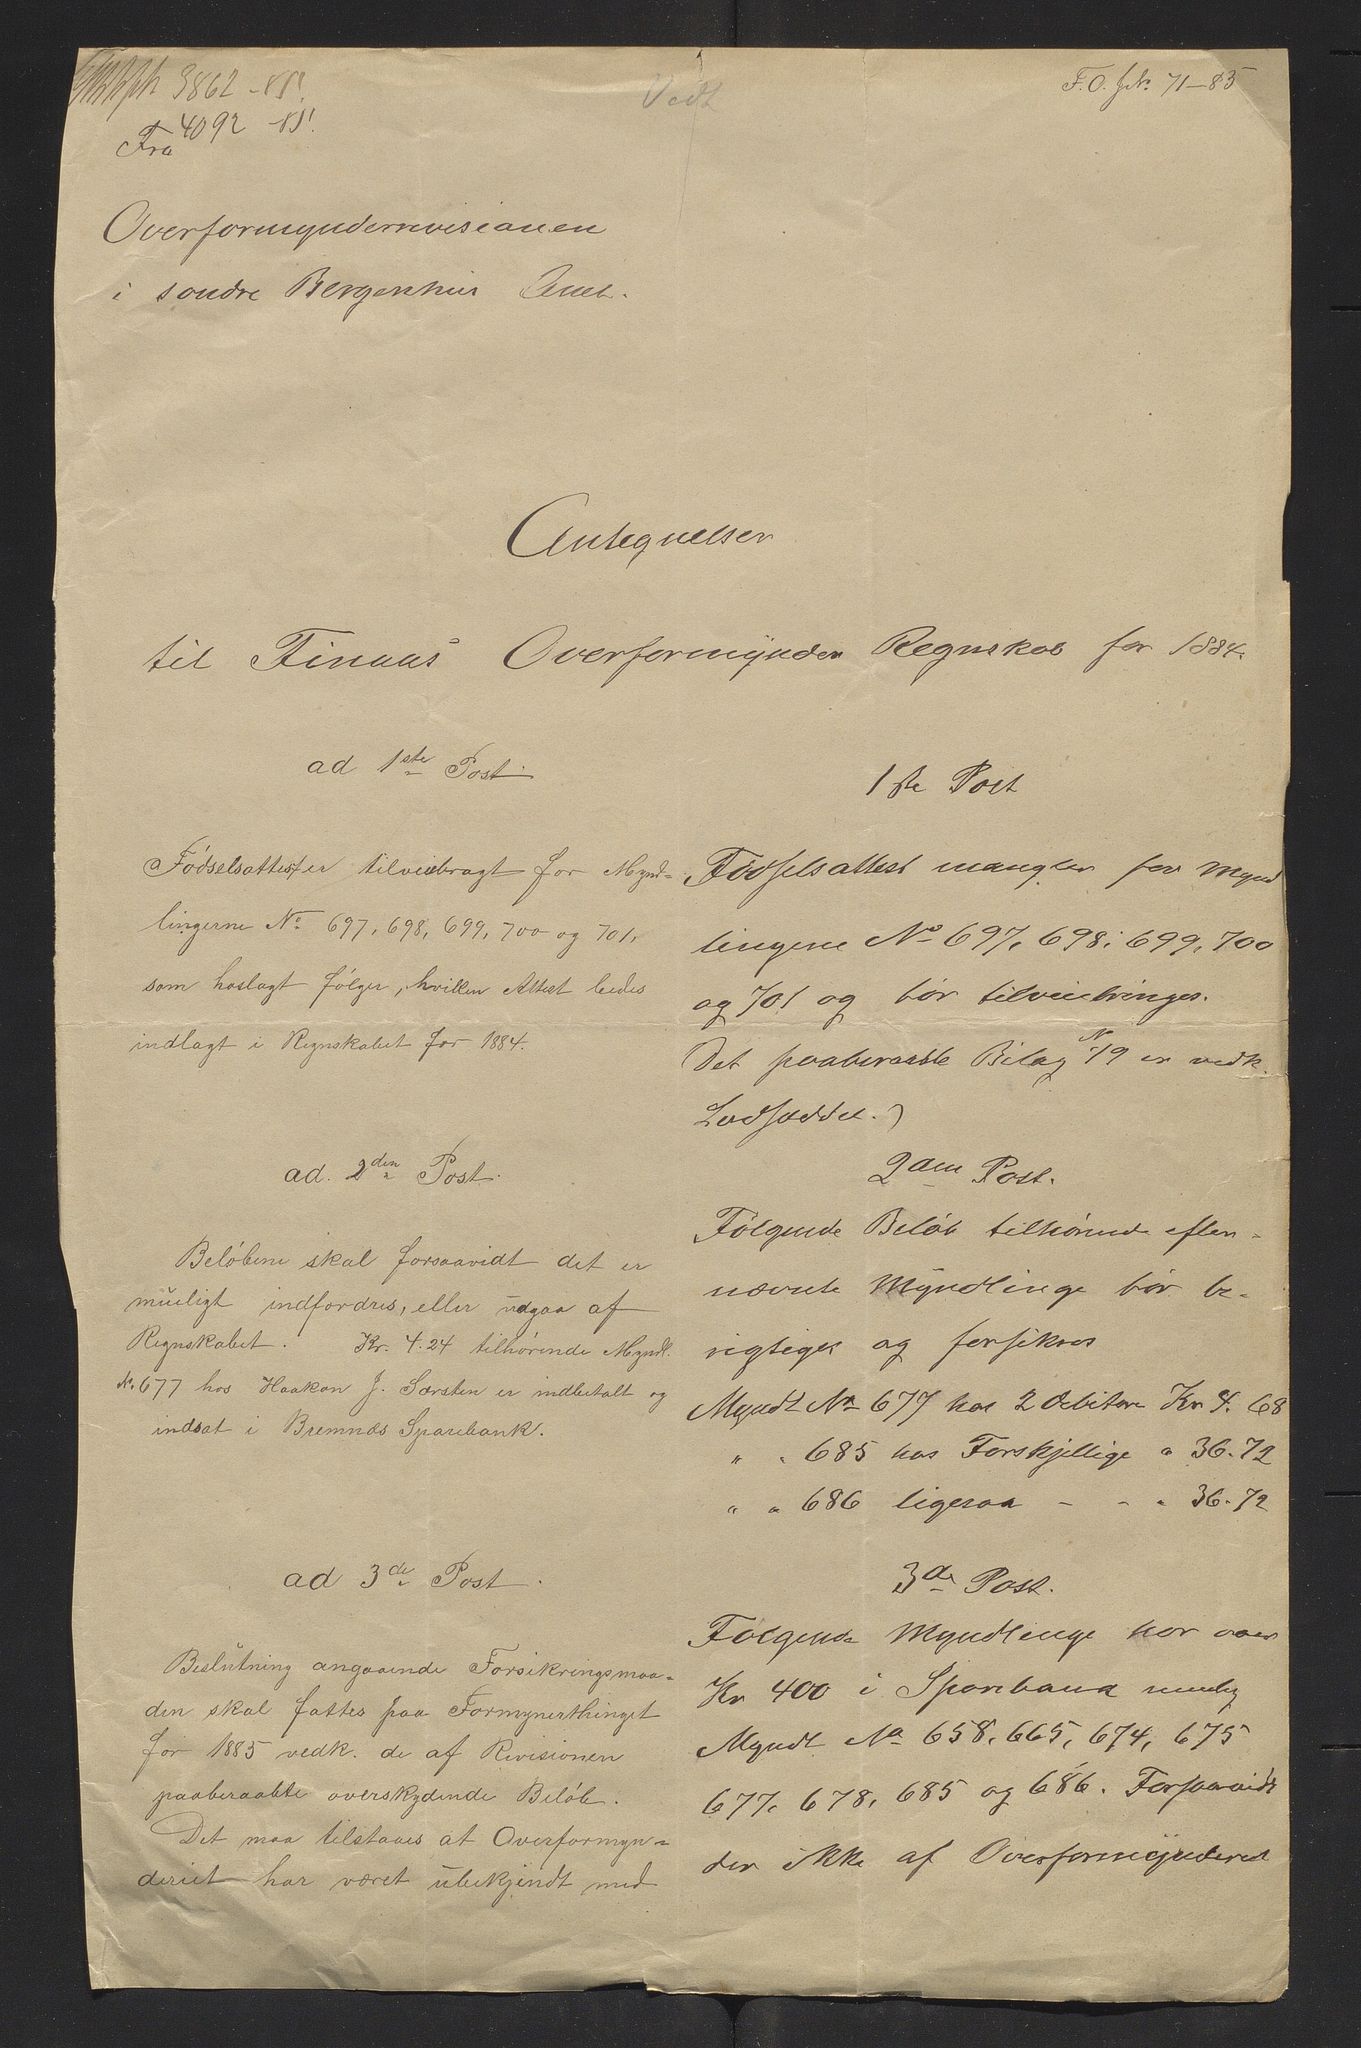 3862 -85.
4092 -85.
Vedt
F.O. JNo. 71-85
Fra
Overformynderrevisionen
i søndre Bergenhus Amt.
Antegnelser
til Finaas Overformynder Regnskab for 1884.
ad 1ste Post.
Fødselsattester tilveiebragt for Mynd-
lingerne No 697, 698, 699, 700 og 701,
som hoslagt følger, hvilken Attest bedes
indlagt i Regnskabet for 1884.
ad. 2den Post.
Beløbene skal forsaavidt det er
mueligt indfordres, eller udgaa af
Regnskabet. Kr. 4.24 tilhørende Myndl.
No. 677 hos Haakon J. Sørsten er indbetalt og
indsat i Bremnæs Sparebank.
ad 3de Post.
Beslutning angaaende Forsikringsmaa-
den skal fattes paa Formynerthinget
for 1885 vedk. de af Revisionen
paaberaabte overskydende Beløb.
Det maa tilstaaes at Overformyn-
deriet har været ubekjendt med
1ste Post
Fødselsattest mangler for Mynd
lingene No 697, 698, 699, 700
og 701 og bør tilveiebringes.
Det paaberaabte Bilag No 79 er vedk.
Lodseddel.)
2den Post.
Følgende Beløb tilhørende efter-
nævnte Myndlinge bør be-
rigtiges og forsikres
Myndl No 677 hos 2 Debitorer Kr 4.68
" " 685 hos Forskjellige " 36.72
" " 686 ligesaa - - " 36.72
3de Post.
Følgende Myndlinge har over
Kr 400 i Sparebank nemlig
Myndl. No 658, 665, 674, 675
677, 678, 685 og 686. Forsaavidt
der ikke af Overformynderiet